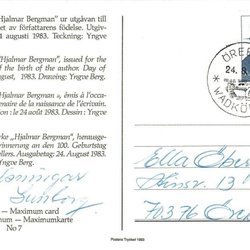 "Hjalmar Bergman" ur utgåvan till
t av författarens födelse. Utgiv-
4 augusti 1983. Teckning: Yngve
"Hjalmar Bergman", issued for the
of the birth of the author. Day of
ugust, 1983. Drawing: Yngve Berg.
Hjalmar Bergman», émis à l'occa-
naire de la naissance de l'écrivain.
ion: le 24 août 1983. Dessin: Yngve
rke „Hjalmar Bergman", herausge-
rinnerung an den 100. Geburtstag
llers. Ausgabetag: 24. August 1983.
Yngve Berg.
– Maximum card
um – Maximumkarte
No 7
Postens Tryckeri 1983
ÖREB
24. 8.
WADKÖ
Ella
13
70376